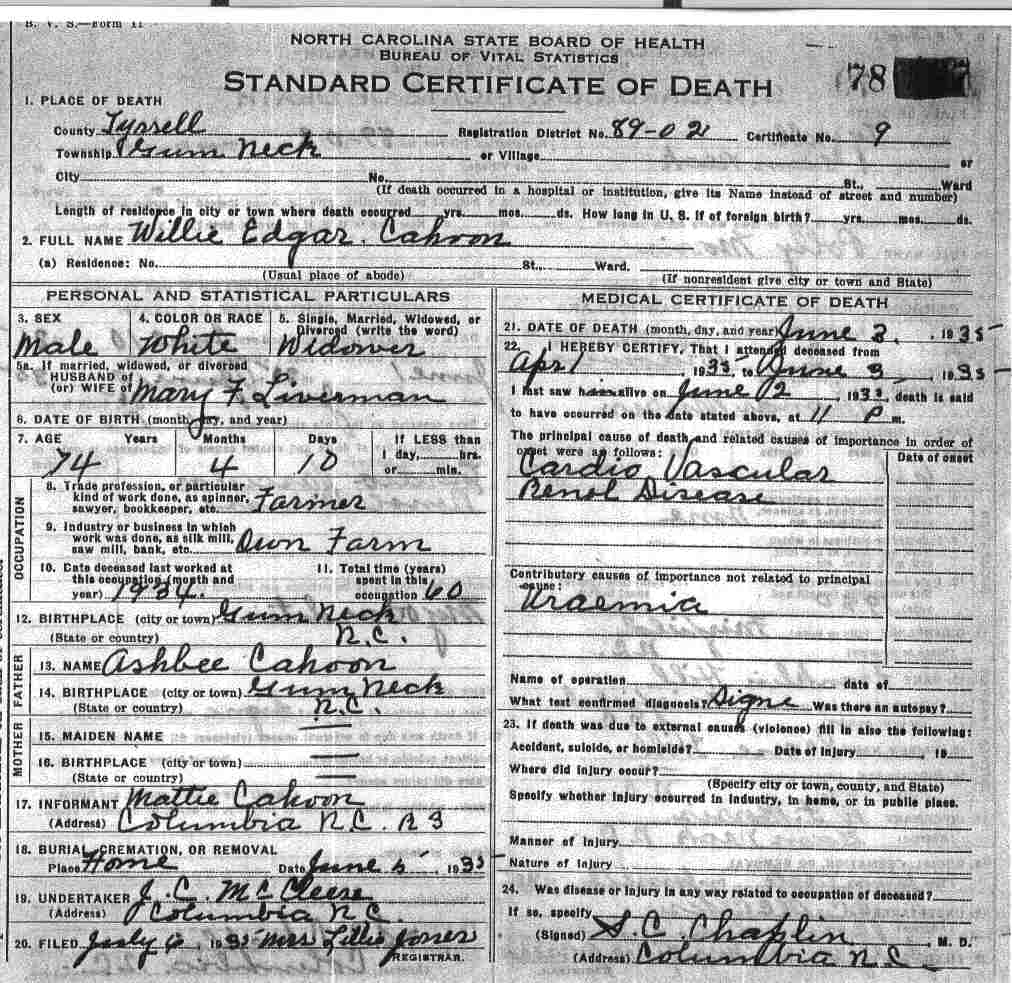 B. V. S.—Form 11
NORTH CAROLINA STATE BOARD OF HEALTH
BUREAU OF VITAL STATISTICS
STANDARD CERTIFICATE OF DEATH
78
1. PLACE OF DEATH
County Tyrrell Registration District No. 89-02 Certificate No. 9
Township Gum Neck or Village or
City No. St., Ward
(If death occurred in a hospital or institution, give its Name instead of street and number)
Length of residence in city or town where death occurred yrs. mos. ds. How long in U. S. if of foreign birth? yrs. mos. ds.
2. FULL NAME Willie Edgar Cahoon
(a) Residence: No. St., Ward.
(Usual place of abode) (If nonresident give city or town and State)
PERSONAL AND STATISTICAL PARTICULARS
3. SEX 4. COLOR OR RACE 5. Single, Married, Widowed, or
Divorced (write the word)
Male White Widower
5a. If married, widowed, or divorced
HUSBAND of
(or) WIFE of Mary F. Liverman
6. DATE OF BIRTH (month, day, and year)
7. AGE Years Months Days If LESS than
1 day, hrs.
or min.
74 4 10
OCCUPATION
8. Trade profession, or particular
kind of work done, as spinner,
sawyer, bookkeeper, etc. Farmer
9. Industry or business in which
work was done, as silk mill,
saw mill, bank, etc. Own Farm
10. Date deceased last worked at
this occupation (month and
year) 1934.
11. Total time (years)
spent in this
occupation 60
12. BIRTHPLACE (city or town) Gum Neck
(State or country) N.C.
FATHER
13. NAME Ashbee Cahoon
14. BIRTHPLACE (city or town) Gum Neck
(State or country) N.C.
MOTHER
15. MAIDEN NAME
16. BIRTHPLACE (city or town)
(State or country)
17. INFORMANT Mattie Cahoon
(Address) Columbia N.C. R3
18. BURIAL, CREMATION, OR REMOVAL
Place Home Date June 5 1935
19. UNDERTAKER J. C. McCleese
(Address) Columbia N.C.
20. FILED July 6 1935 Mrs Lillie Jones
REGISTRAR.
MEDICAL CERTIFICATE OF DEATH
21. DATE OF DEATH (month, day, and year) June 3. 1935
22. I HEREBY CERTIFY, That I attended deceased from
Apr 1 1935, to June 3 1935
I last saw him alive on June 2 1935, death is said
to have occurred on the date stated above, at 11 P m.
The principal cause of death and related causes of importance in order of
onset were as follows: Date of onset
Cardio Vascular
Renal Disease
Contributory causes of importance not related to principal
cause:
Uraemia
Name of operation date of
What test confirmed diagnosis? Signs Was there an autopsy?
23. If death was due to external causes (violence) fill in also the following:
Accident, suicide, or homicide? Date of injury 19
Where did injury occur?
(Specify city or town, county, and State)
Specify whether injury occurred in industry, in home, or in public place.
Manner of injury
Nature of injury
24. Was disease or injury in any way related to occupation of deceased?
If so, specify
(Signed) S. C. Chaplin, M. D.
(Address) Columbia N.C.